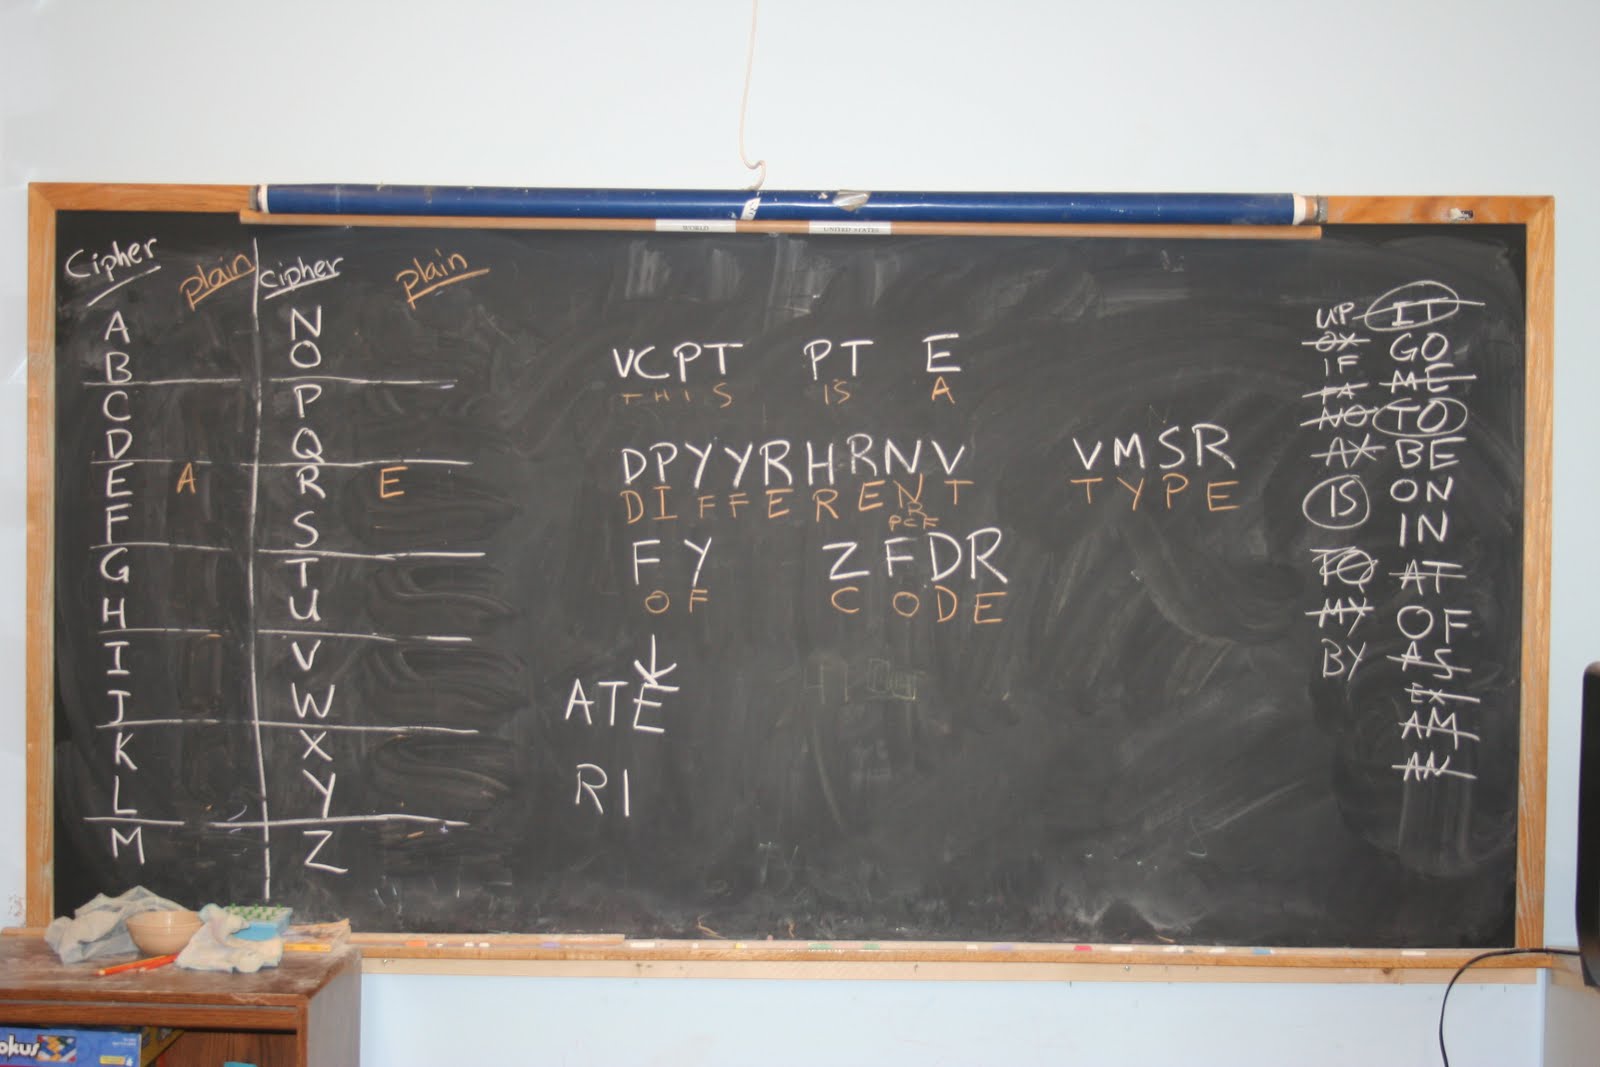 WORLD UNITED STATES
Cipher plain cipher plain
A N
B O
C P
D Q
E A R E
F S
G T
H U
I V
J W
K X
L Y
M Z
VCPT PT E
THIS IS A
DPYYRHRNV VMSR
DIFFERENT TYPE
FY ZFDR
OF CODE
ATE
RI
UP IT
OX GO
IF ME
PA TO
NO BE
AX ON
IS IN
AT
MY OF
BY AS
EX
AM
AN